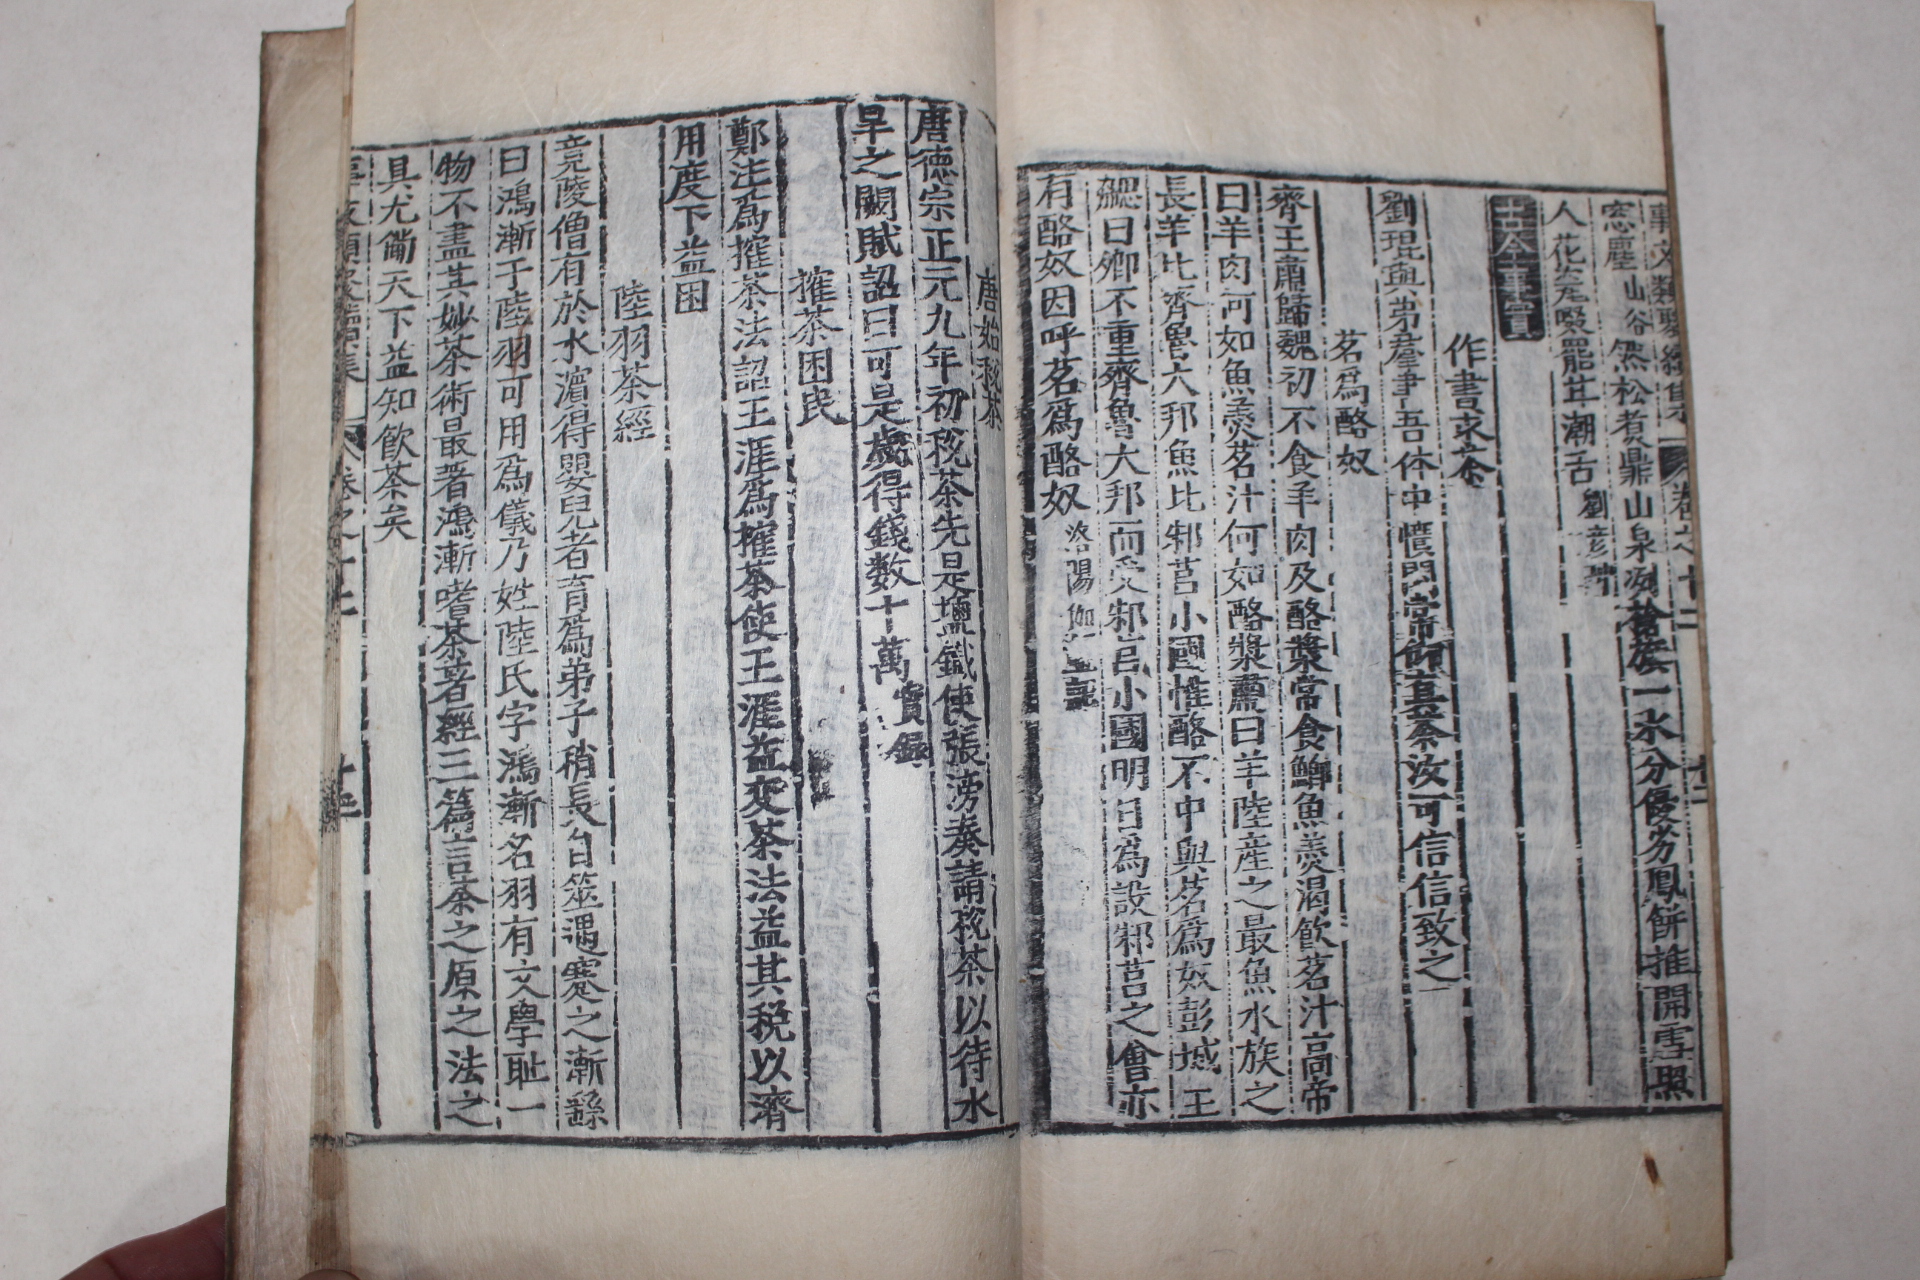 事文類聚續集 卷之十二 十二
窓塵山谷然松煮鼎山泉冽 一水分優劣鳳餅推開雪照
人花 啜罷芽潮舌劉彦
古今事實
作書求茶
劉琨與弟羣書吾体中憒悶常仰真茶汝可信信致之
茗爲酪奴
齊王肅歸魏初不食羊肉及酪漿常食鯽魚羹渴飲茗汁高帝
曰羊肉何如魚羹茗汁何如酪漿肅曰羊陸産之最魚水族之
長羊比齊魯六邦魚比邾莒小國惟酪不中與茗爲奴彭城王
勰曰卿不重齊魯大邦而受邾莒小國明日爲設邾莒之會亦
有酪奴因呼茗爲酪奴洛陽伽 記
唐始稅茶
唐德宗正元九年初稅茶先是塩鐵使張滂奏請稅茶以待水
旱之闕賦詔曰可是歲得錢数十萬實録
搉茶困民
鄭注爲搉茶法詔王涯爲搉茶使王涯益变茶法益其税以濟
用度下益困
陸羽茶經
竟陵僧有於水濵得嬰兒者育爲弟子稍長自筮遇蹇之漸繇
曰鴻漸于陸羽可用爲儀乃姓陸氏字鴻漸名羽有文學耻一
物不盡其妙茶術最著鴻漸嗜茶著經三篇言茶之原之法之
具尤備天下益知飲茶矣
卷之十二